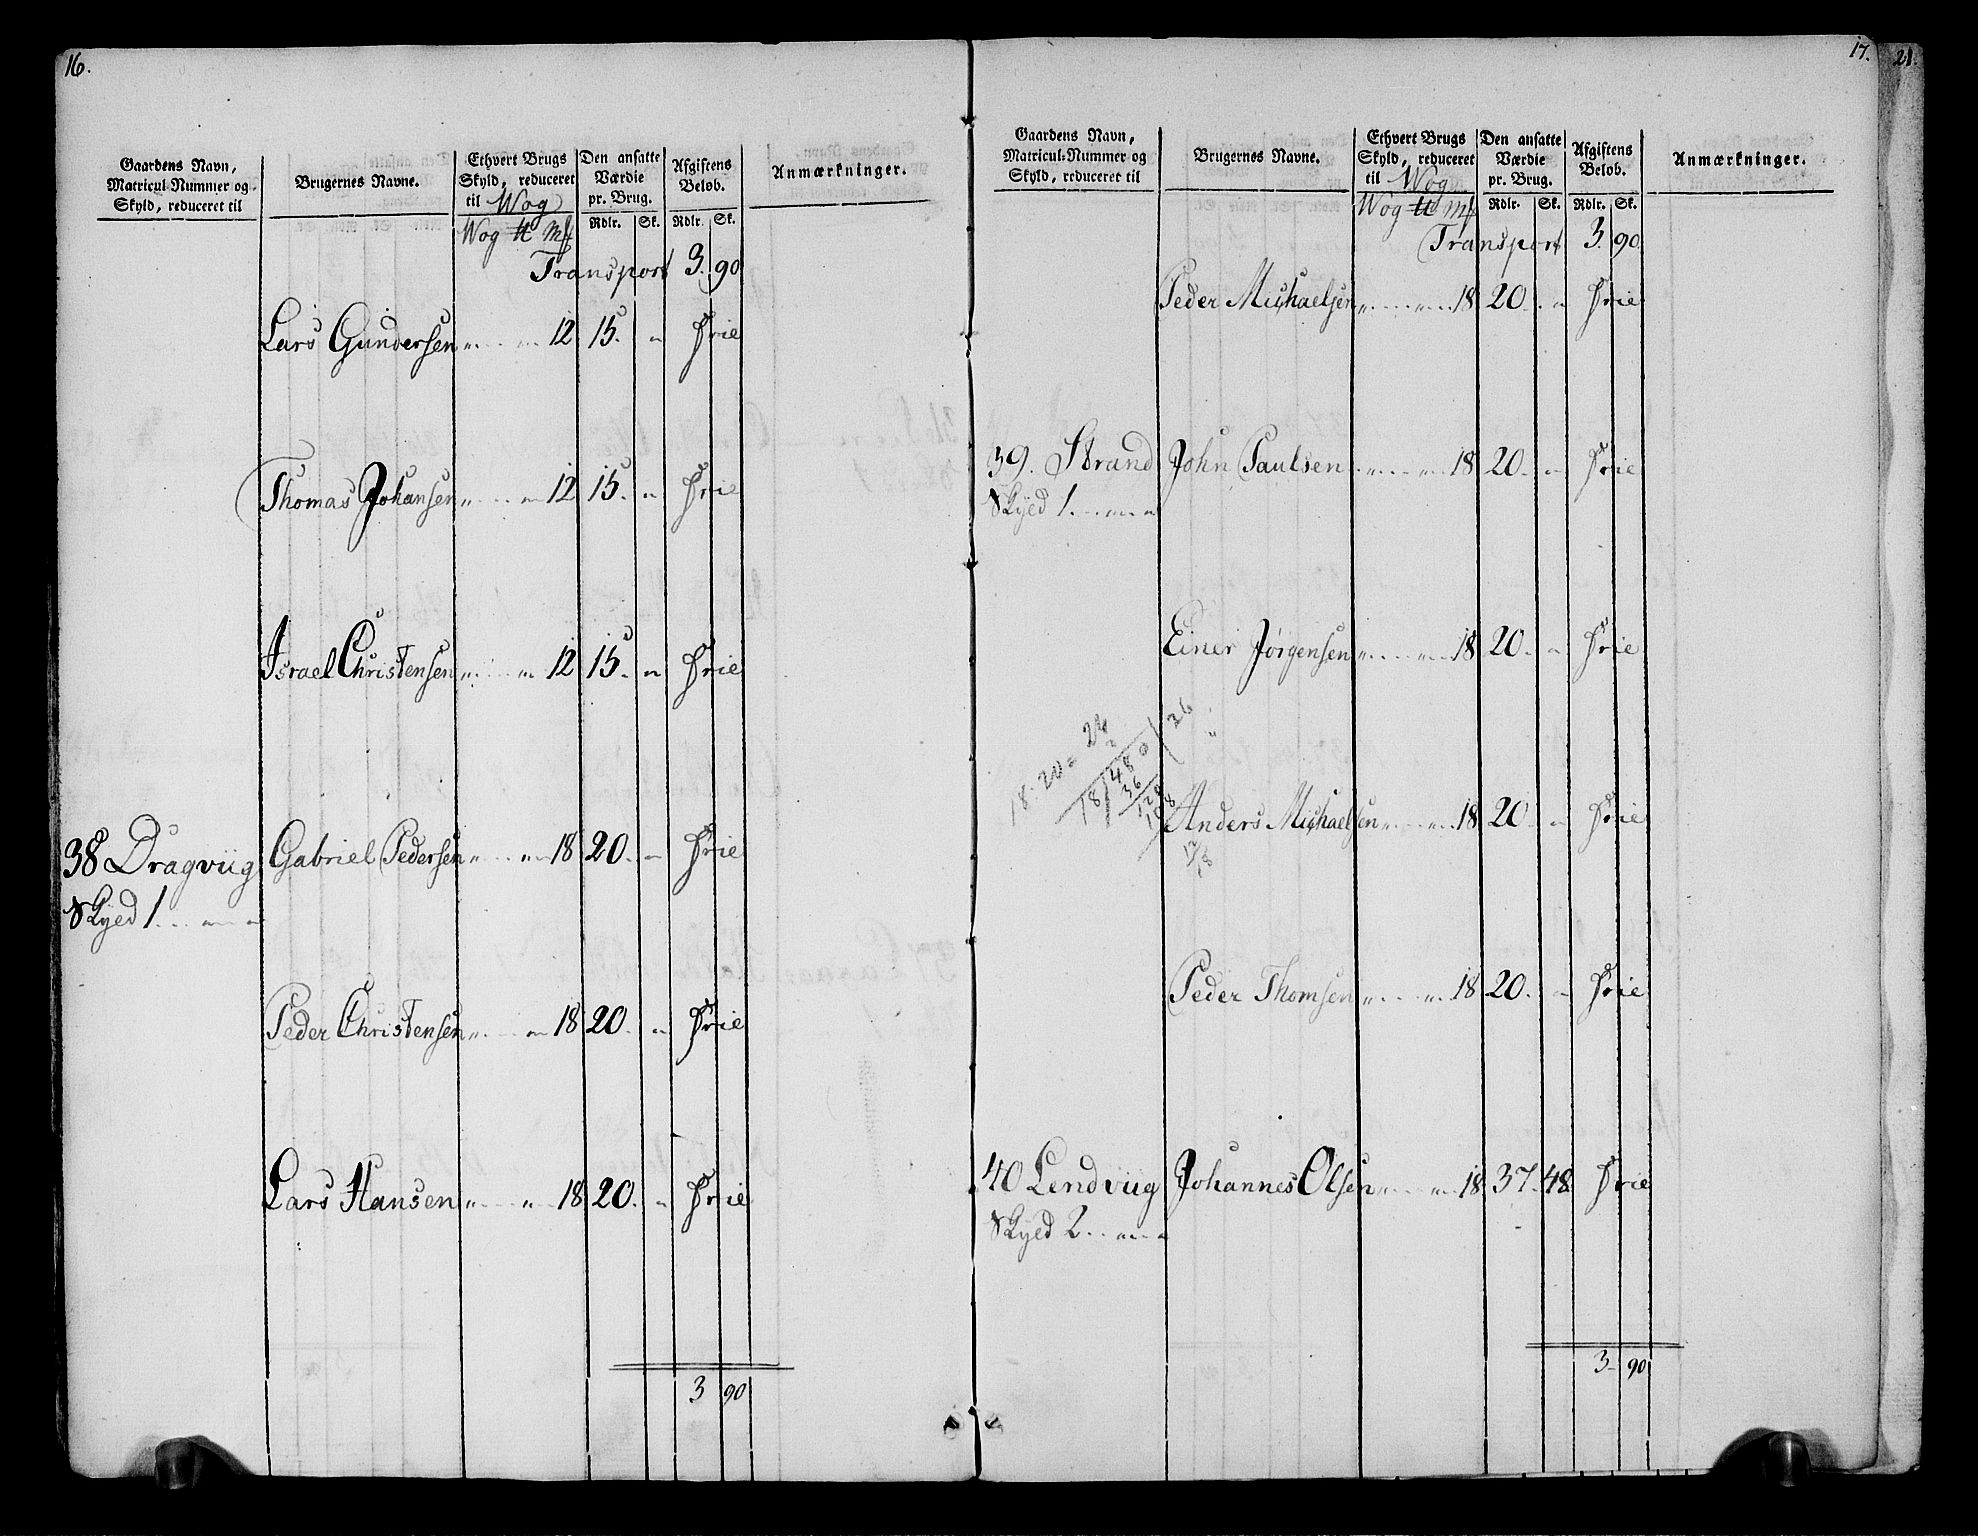 16.
Gaardens Navn, Matricul-Nummer og Skyld, reduceret til
Brugernes Navne.
Ethvert Brugs Skyld, reduceret til Wog
Den ansatte Værdie pr. Brug.
Afgiftens Beløb.
Anmærkninger.
Wog ℔ Mk Rdlr. Sk. Rdlr. Sk.
Transport 3. 90
Lars Gundersen „ „ 12 15. „ Frie
Thomas Johansen „ „ 12 15. „ Frie
Israel Christensen „ „ 12 15. „ Frie
38 Dragviig Gabriel Pedersen „ „ 18 20. „ Frie
Skyed 1 „ „
Peder Christensen „ „ 18 20. „ Frie
Lars Hansen „ „ 18 20. „ Frie
3 90
17.
Gaardens Navn, Matricul-Nummer og Skyld, reduceret til
Brugernes Navne.
Ethvert Brugs Skyld, reduceret til Wog
Den ansatte Værdie pr. Brug.
Afgiftens Beløb.
Anmærkninger.
Wog ℔ Mk Rdlr. Sk. Rdlr. Sk.
Transport 3. 90
Peder Michaelsen „ „ 18 20. „ Frie
39. Strand John Paulsen „ „ 18 20. „ Frie
Skyed 1 „ „
Einer Jørgensen „ „ 18 20. „ Frie
18. 20 = 24
18/480/26
36
120
108
12/18
Anders Michaelsen „ „ 18 20. „ Frie
Peder Thomsen „ „ 18 20. „ Frie
40 Lendviig Johannes Olsen „ „ 18 37. 48. Frie
Skyed 2 „ „
3 90
21.